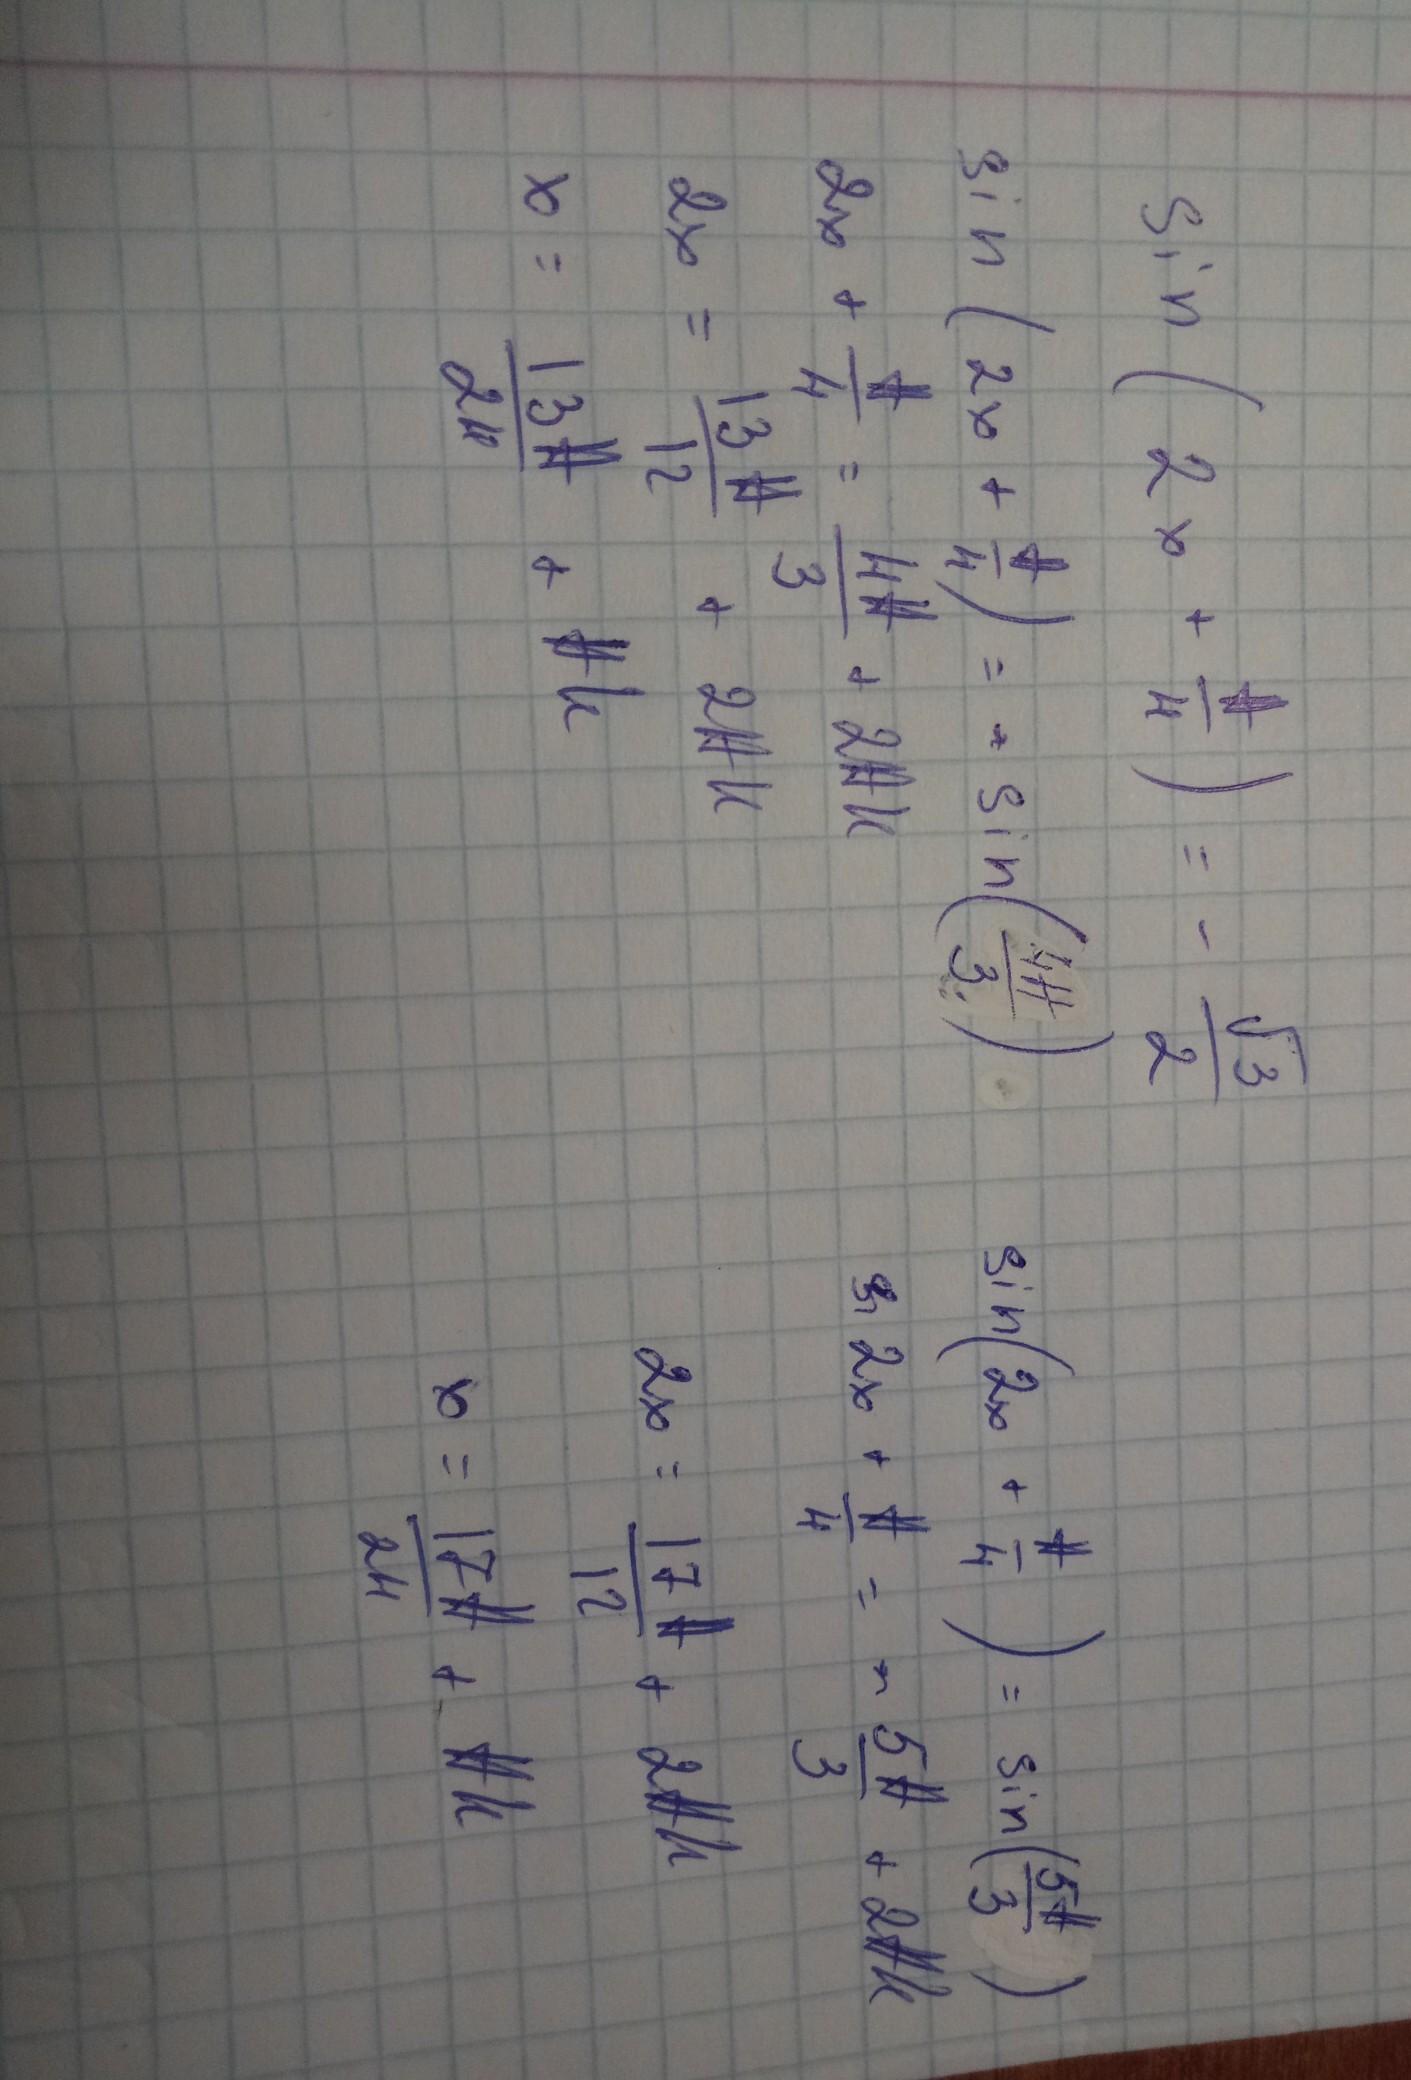 sin(2x + π/4) = - √3/2
sin(2x + π/4) = + sin(4π/3)
2x + π/4 = 4π/3 + 2πk
2x = 13π/12 + 2πk
x = 13π/24 + πk
sin(2x + π/4) = sin(5π/3)
2x + π/4 = 5π/3 + 2πk
2x = 17π/12 + 2πk
x = 17π/24 + πk